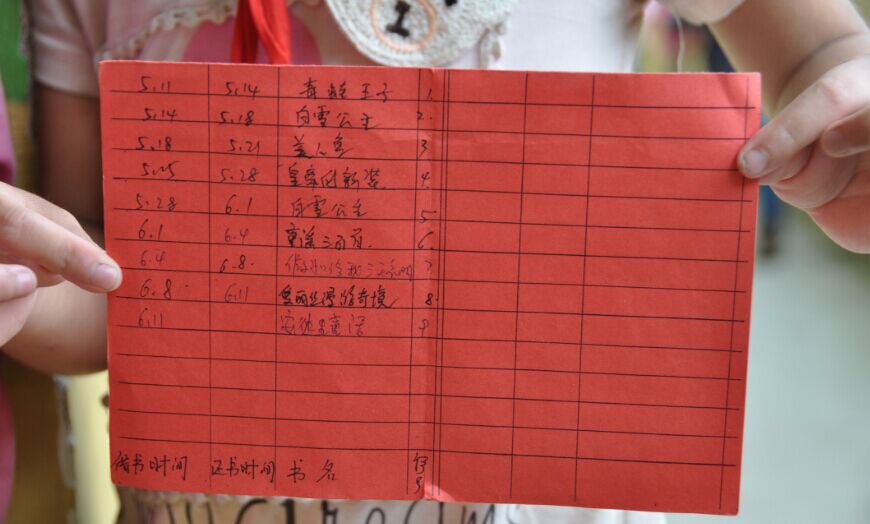 5.11 5.14 青蛙王子 1.
5.14 5.18 白雪公主 2.
5.18 5.21 美人鱼 3
5.25 5.28 皇帝的新装 4.
5.28 6.1 白雪公主 5
6.1 6.4 童谣三百首. 6.
6.4 6.8. 7
6.8. 6.11 爱丽丝漫游奇境 8.
6.11 安徒生童话 9
借书时间 还书时间 书名 序号